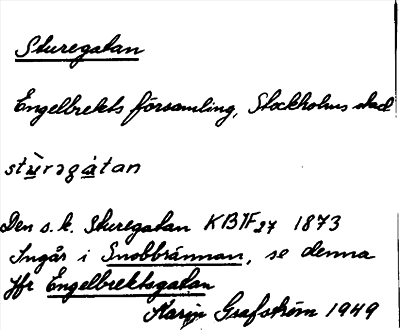 Sturegatan
Engelbrekts församling, Stockholms stad
stùrəgátan
Den s.k. Sturegatan KBTF 27 1873
Ingår i Snobbrännan, se denna
Jfr Engelbrektsgatan
Karin Grafström 1949